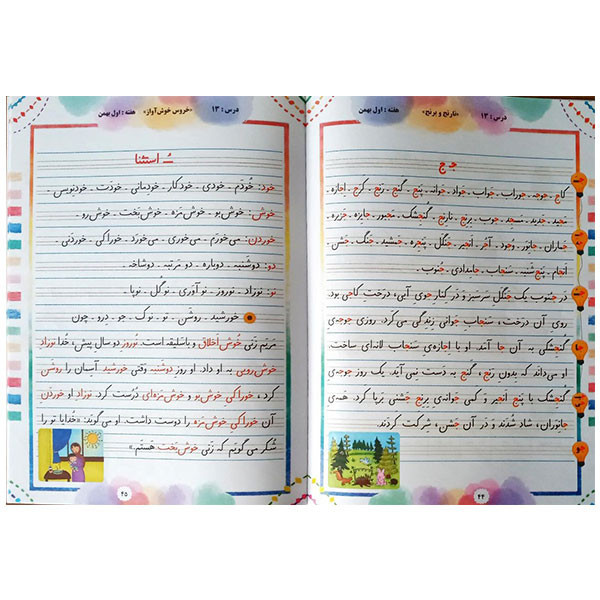 درس : ۱۳ «نارنج و برنج» هفته : اول بهمن
جـ ج
کاج ـ جوجه ـ جوراب ـ جواب ـ جَواد ـ جَوانه ـ پَنج ـ گَنج ـ رَنج ـ کَرَج ـ اِجازه ـ
مَجید ـ جَدید ـ مَسجِد ـ جیب ـ بِرِنج ـ نارِنج ـ گُنجِشک ـ مَجبور ـ جایِزه ـ جَزیره ـ
جانوَر ـ وُجود ـ آجُر ـ اَنجیر ـ جَنگَل ـ پَنجِره ـ جَمشید ـ جَنگ ـ جَشن ـ
اَنجام ـ پَنج‌شَنبه ـ سَنجاب ـ جامِدادی ـ جُنوب ـ
در جُنوب یک جَنگَل سَرسَبز و دَر کِنارِ جویِ آبی، دِرَختِ کاجی بود.
روی آن دِرَخت، سَنجابِ جَوانی زِندِگی می‌کَرد. روزی جوجه‌یِ
گُنجِشکی به آن جا آمَد. او با اِجازه‌یِ سَنجاب لانه‌ای ساخت.
او می‌داند که بِدونِ رَنج، گَنج به دَست نِمی آیَد. یک روز جوجه‌یِ
گُنجِشک با پَنج اَنجیر و کَمی جَوانه‌یِ بِرِنج جَشنی بَرپا کَرد. هَمه‌یِ
جانِوَران، شاد شُدَند و دَر آن جَشن، شِرکَت کَردَند.
جـ
جا
جو
۴۴
درس : ۱۳ «خروس خوش‌آواز» هفته : اول بهمن
ـُـ استثنا
خود: خُودَم ـ خودی ـ خودکار ـ خودمانی ـ خودَت ـ خودنِویس ـ
خوش: خوش‌بو ـ خوش‌مَزه ـ خوش‌بَخت ـ خوش‌رو ـ
خوردن: می‌خورَم ـ می‌خوری ـ می‌خورَد ـ خوراکی ـ خوردَنی ـ
دو: دوشَنبه ـ دوباره ـ دو مَرتَبه ـ دوشاخه ـ
نو: نوزاد ـ نوروز ـ نوآوَری ـ نوگُل ـ نوپا ـ
خورشید ـ روشَن ـ تو ـ نوک ـ جو ـ دِرو ـ چون
مَریَم زَنی خوش‌اَخلاق و باسَلیقه اَست. نوروزِ دو سالِ پیش، خُدا نوزادِ
خوش‌رویی به او داد. او روزِ دوشَنبه وَقتی خورشید آسِمان را روشَن
کَرد، خوراکیِ خوش‌بو و خوش‌مَزه‌ای دُرُست کَرد. نوزادِ او خوردَنِ
آن خوراکیِ خوش‌مَزه را دوست داشت. او می‌گوید: «خُدایا تو را
شُکر می‌گویَم که زَنی خوش‌بَخت هَستَم.»
۴۵